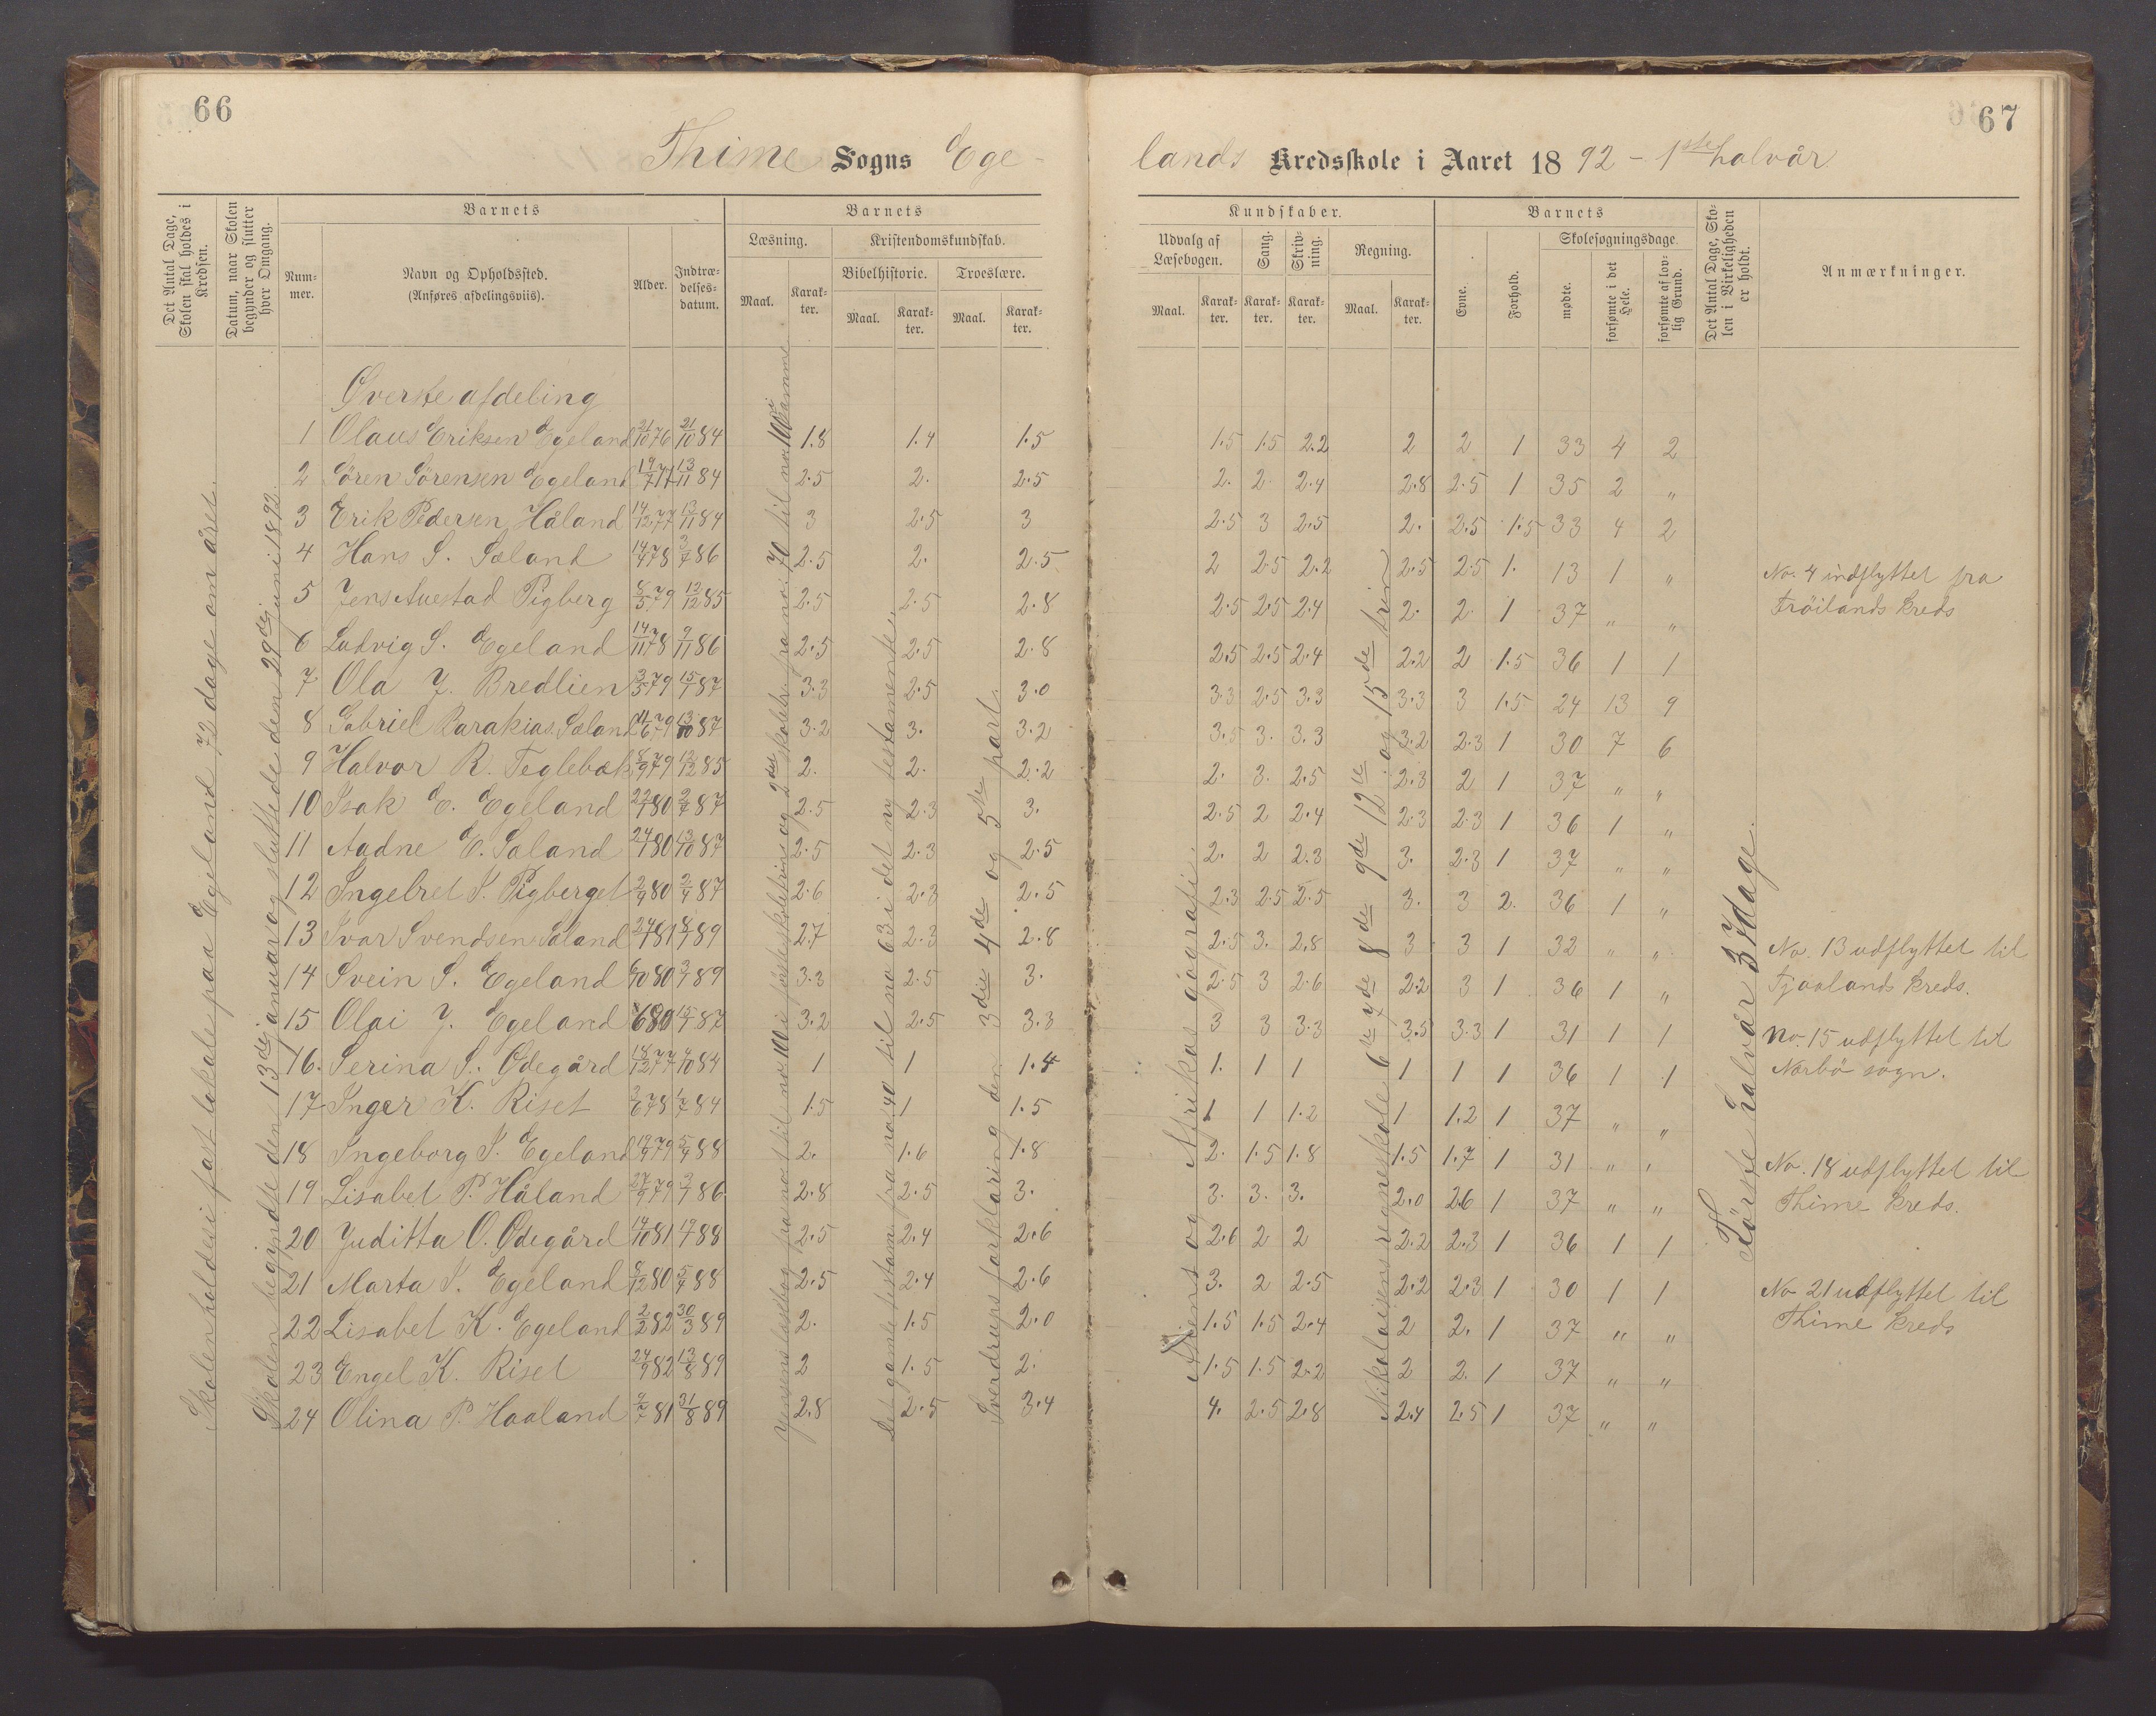 66
Thime Sogns Ege-
Det Antal Dage, Skolen skal holdes i Kredsen.
Datum, naar Skolen begynder og slutter hver Omgang.
Barnets
Num-mer.
Navn og Opholdssted. (Anføres afdelingsviis).
Alder.
Indtræ-delses-datum.
Barnets
Læsning.
Kristendomskundskab.
Bibelhistorie.
Troeslære.
Maal.
Karak-ter.
Maal.
Karak-ter.
Maal.
Karak-ter.
Skolen holdes i fast lokale paa Egeland 72 dage om året.
Skolen begyndte den 13de januar og sluttede den 29de juni 1892.
Det gamle testam. fra no 40 til no 63 i det ny testamente.
Sverdrups forklaring den 3die 4de og 5te part.
Øverste afdeling
1 Olaus Eriksen Egeland 21/10 76 21/10 84 1.8 1.4 1.5
2 Sören Sörensen Egeland 19/7 77 13/11 84 2.5 2. 2.5
3 Erik Pedersen Håland 14/12 77 13/11 84 3 2.5 3
4 Hans S. Sæland 14/4 78 3/7 86 2.5 2. 2.5
5 Jens Auestad Pigberg 8/5 79 12/12 85 2.5 2.5 2.8
6 Ludvig S. Egeland 14/11 78 9/11 86 2.5 2.5 2.8
7 Ola J. Bredlien 3/5 79 15/1 87 3.3 2.5 3.0
8 Gabriel Barakias. Sæland 11/6 79 13/10 87 3.2 3. 3.2
9 Halvor R. Teglebæk 8/9 79 12/12 85 2. 2. 2.2
10 Isak E. Egeland 22/1 80 2/7 87 2.5 2.3 3.
11 Aadne E. Saland 24/1 80 13/10 87 2.5 2.3 2.5
12 Ingebret S. Pigberget 2/9 80 2/4 87 2.6 2.3 2.5
13 Ivar Svendsen Sæland 24/1 81 8/1 89 2.7 2.3 2.8
14 Svein S. Egeland 6/10 80 3/1 89 3.3 2.5 3.
15 Olai J. Egeland 6 80 15/1 87 3.2 2.5 3.3
16. Serina S. Ødegård 18/12 77 4/10 84 1 1 1.4
17 Inger K. Riset 3/6 78 1/7 84 1.5 1 1.5
18 Ingeborg S. Egeland 19/9 79 5/4 88 2. 1.6 1.8
19 Lisabet P. Håland 27/9 79 3/1 86 2.8 2.5 3.
20 Juditta O. Ødegård 14/10 81 88 2.5 2.4 2.6
21 Marta S. Egeland 8/12 80 5/4 88 2.5 2.4 2.6
22 Lisabet K. Egeland 2/2 82 30/3 89 2. 1.5 2.0
23 Engel K. Riset 24/9 82 13/8 89 2 1.5 2.
24 Olina P. Haaland 2/7 81 31/8 89 2.8 2.5 3.4
67
lands Kredsskole i Aaret 1892 - 1ste halvår
Kundskaber.
Udvalg af Læsebogen.
Sang.
Skriv-ning.
Regning.
Maal.
Karak-ter.
Karak-ter.
Karak-ter.
Maal.
Karak-ter.
Barnets
Evne.
Forhold.
Skolesøgningsdage.
mødte.
forsømte i det Hele.
forsømte af lov-lig Grund.
Det Antal Dage, Sko-len i Virkeligheden er holdt.
Anmærkninger.
Asiens og Afrikas geografi.
Nikolaisens regneskole 6te 7de 8de 9de 12te og 15de trin
Förste halvår 37 dage.
1.5 1.5 2.2 2 2 1 33 4 2
2. 2 2.4 2.8 2.5 1 35 2 "
2.5 3 2.5 2. 2.5 1.5 33 4 2
2 2.5 2.2 2.5 2.5 1. 13 1 " No. 4 indflyttet fra
2.5 2.5 2.4 2. 2. 1 37 " " Fröilands kreds
2.5 2.5 2.4 2.2 2 1.5 36 1 1
3.3 2.5 3.3 3.3 3 1.5 24 13 9
3.5 3. 3.3 3.2 2.3 1 30 7 6
2. 3. 2.5 2.3 2 1 37 " "
2.5 2 2.4 2.3 2.3 1 36 1 "
2. 2 2.3 3. 2.3 1 37 " "
2.3 2.5 2.5 3. 3 2. 36 1 "
2.5 3. 2.8 3 3 1 32 " " No. 13 udflyttet til
2.5 3 2.6 2.2 3 1 36 1 " Fjaalands kreds.
3 3 3.3 3.5 3.3 1 31 1 1 No. 15 udflyttet til
1. 1 1 1 1 1 36 1 1 Nærbö sogn.
1 1 1.2 1 1.2 1 37 " "
2. 1.5 1.8 1.5 1.7 1 31 " " No. 18 udflyttet til
3. 3. 3. 2.0 2.6 1 37 " " Thime kreds.
2.6 2 2 2.2 2.3 1 36 1 1
3. 2 2.5 2.2 2.3 1 30 1 1 No 21 udflyttet til
1.5 1.5 2.4 2 2. 1 37 " " Thime kreds
1.5 1.5 2.2 2 2. 1 37 " "
4. 2.5 2.8 2.4 2.5 1 37 " "